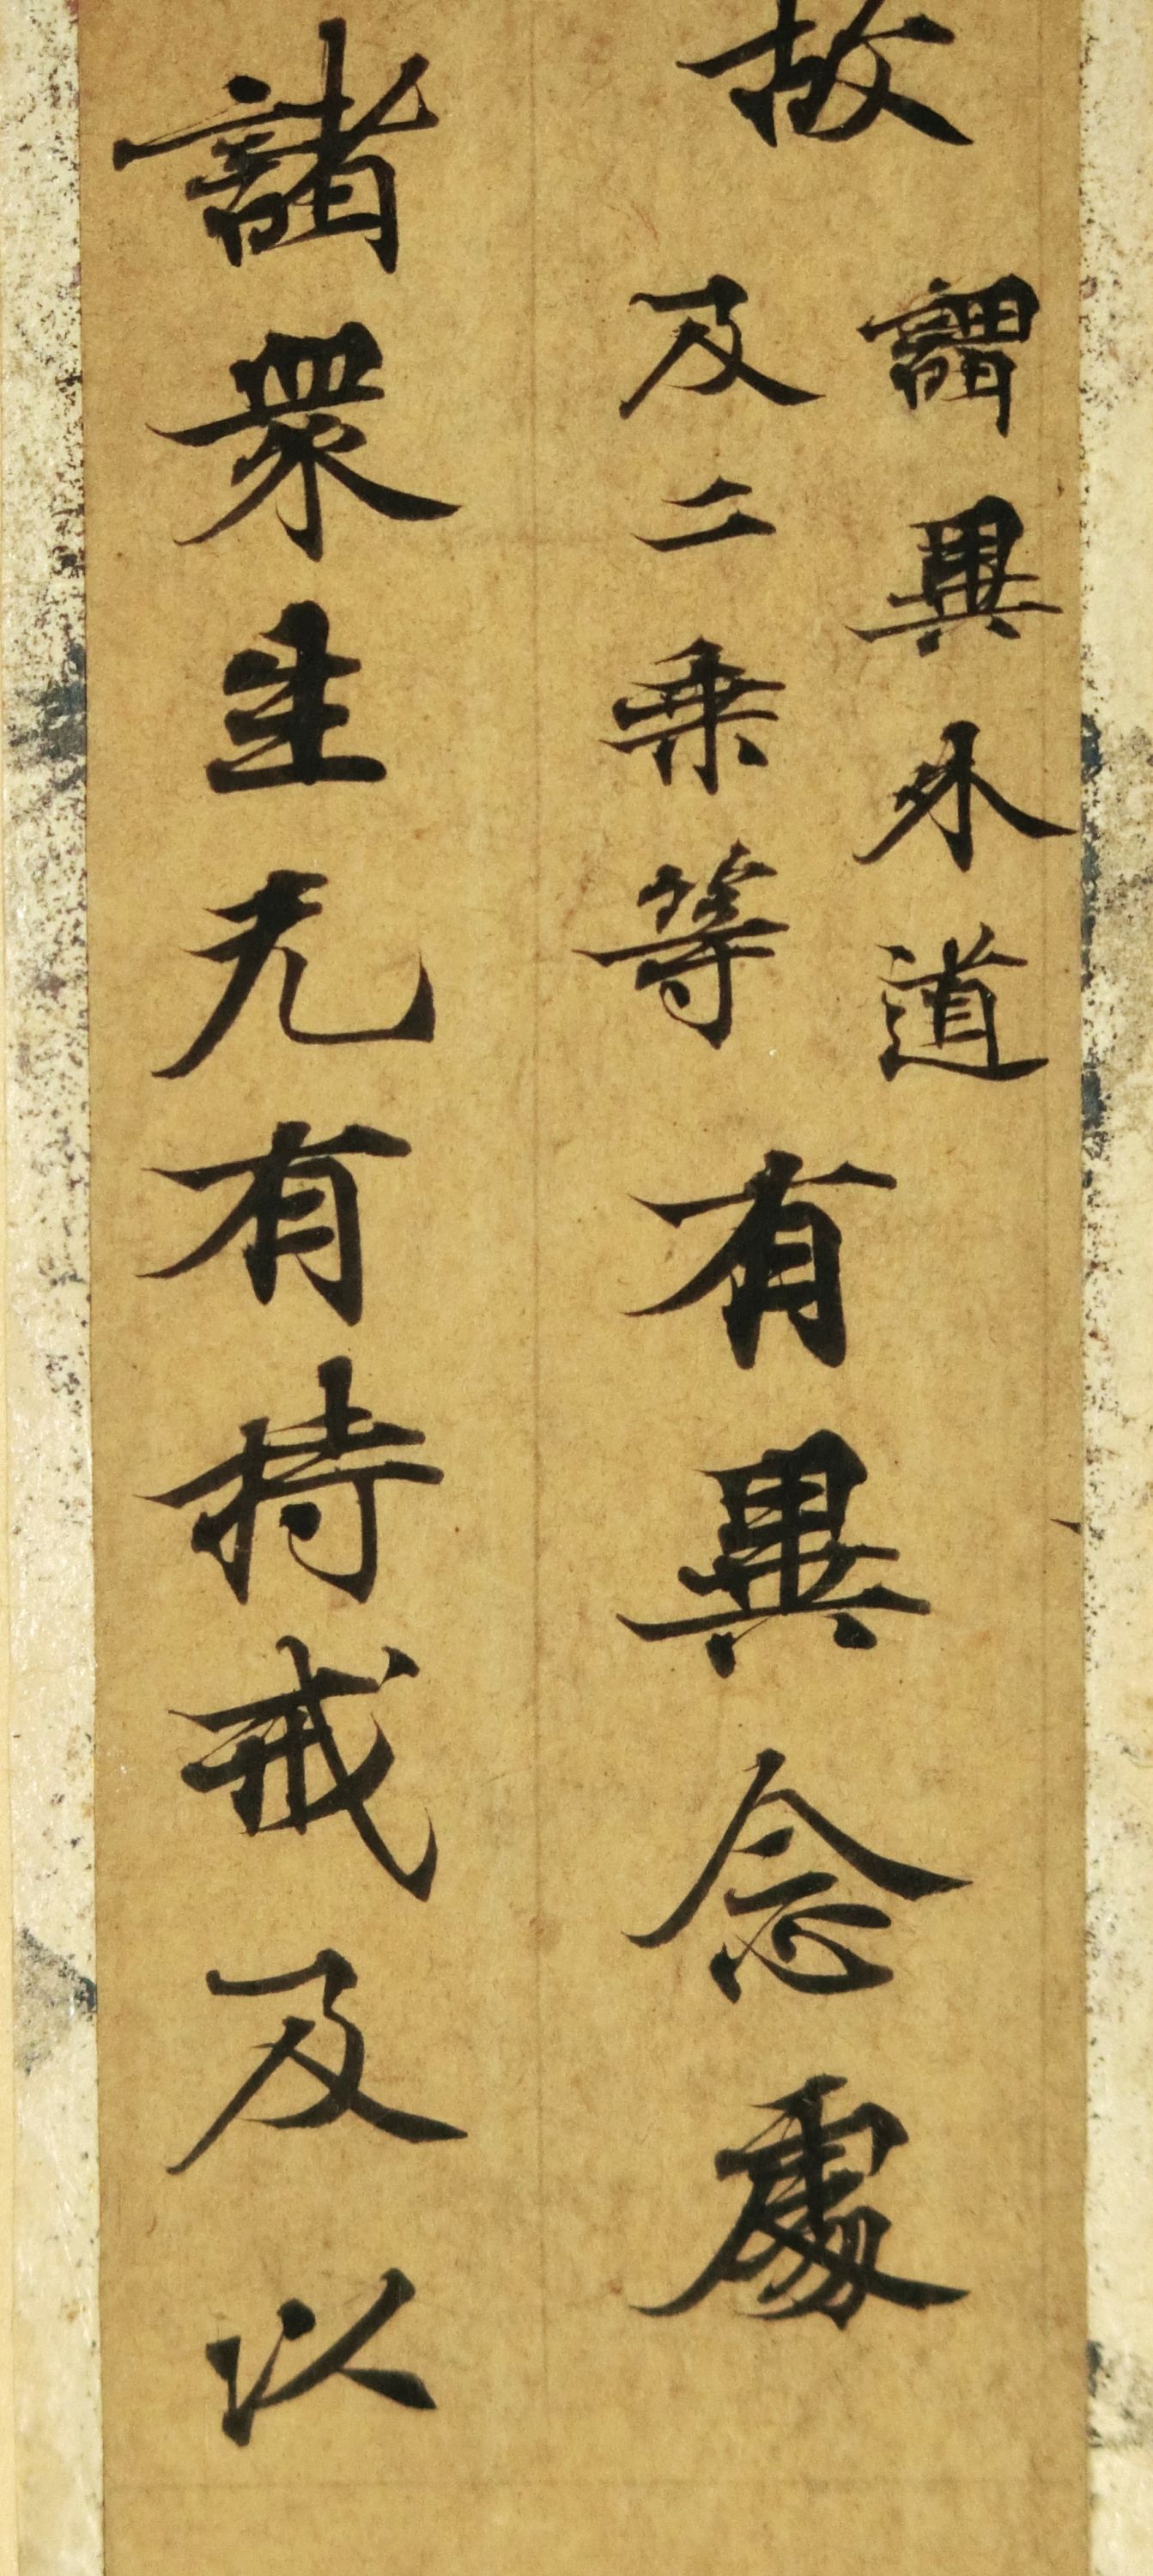 故
謂異外道
及二乗等
有異念處
諸衆生无有持戒及以